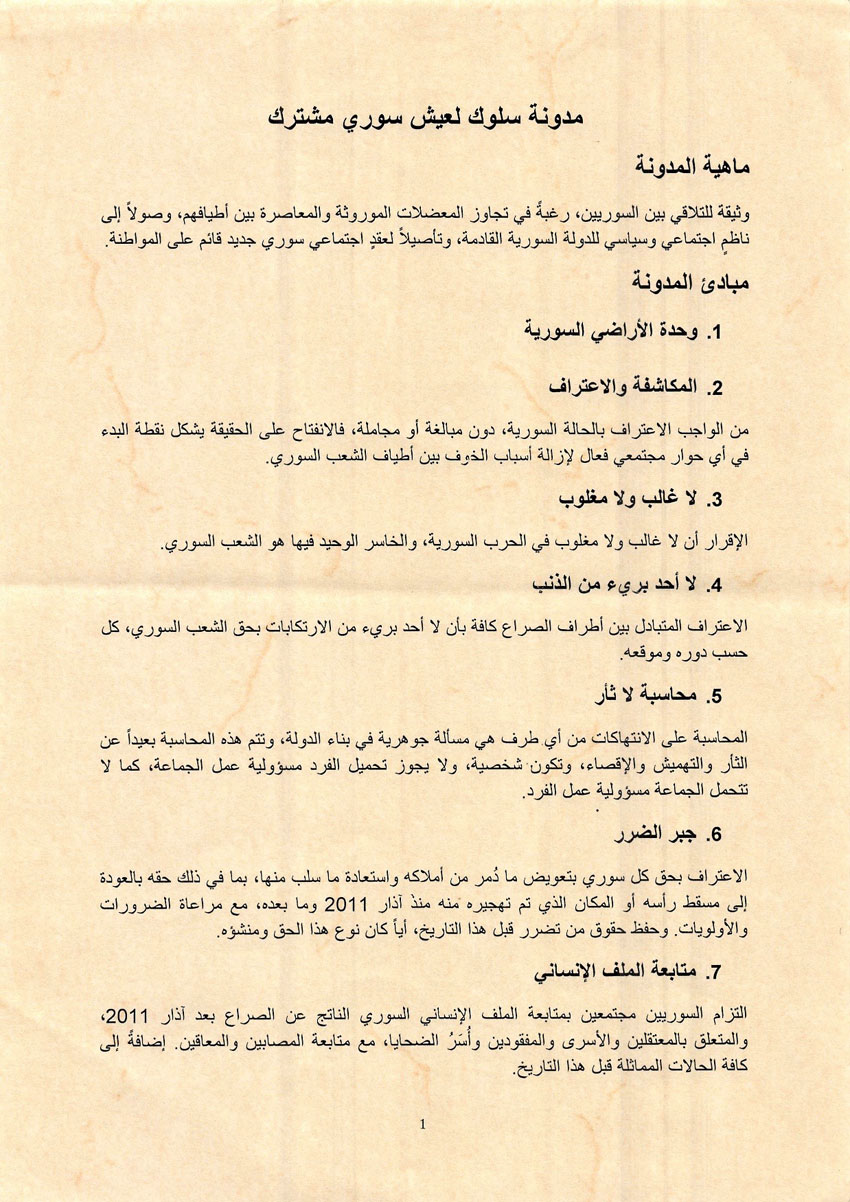 مدونة سلوك لعيش سوري مشترك
ماهية المدونة
وثيقة للتلاقي بين السوريين، رغبةً في تجاوز المعضلات الموروثة والمعاصرة بين أطيافهم، وصولاً إلى
ناظمٍ اجتماعي وسياسي للدولة السورية القادمة، وتأصيلاً لعقدٍ اجتماعي سوري جديد قائم على المواطنة.
مبادئ المدونة
1. وحدة الأراضي السورية
2. المكاشفة والاعتراف
من الواجب الاعتراف بالحالة السورية، دون مبالغة أو مجاملة، فالانفتاح على الحقيقة يشكل نقطة البدء
في أي حوار مجتمعي فعال لإزالة أسباب الخوف بين أطياف الشعب السوري.
3. لا غالب ولا مغلوب
الإقرار أن لا غالب ولا مغلوب في الحرب السورية، والخاسر الوحيد فيها هو الشعب السوري.
4. لا أحد بريء من الذنب
الاعتراف المتبادل بين أطراف الصراع كافة بأن لا أحد بريء من الارتكابات بحق الشعب السوري، كل
حسب دوره وموقعه.
5. محاسبة لا ثأر
المحاسبة على الانتهاكات من أي طرف هي مسألة جوهرية في بناء الدولة، وتتم هذه المحاسبة بعيداً عن
الثأر والتهميش والإقصاء، وتكون شخصية، ولا يجوز تحميل الفرد مسؤولية عمل الجماعة، كما لا
تتحمل الجماعة مسؤولية عمل الفرد.
6. جبر الضرر
الاعتراف بحق كل سوري بتعويض ما دُمر من أملاكه واستعادة ما سلب منها، بما في ذلك حقه بالعودة
إلى مسقط رأسه أو المكان الذي تم تهجيره منه منذ آذار 2011 وما بعده، مع مراعاة الضرورات
والأولويات. وحفظ حقوق من تضرر قبل هذا التاريخ، أياً كان نوع هذا الحق ومنشؤه.
7. متابعة الملف الإنساني
التزام السوريين مجتمعين بمتابعة الملف الإنساني السوري الناتج عن الصراع بعد آذار 2011،
والمتعلق بالمعتقلين والأسرى والمفقودين وأُسَرُ الضحايا، مع متابعة المصابين والمعاقين. إضافةً إلى
كافة الحالات المماثلة قبل هذا التاريخ.
1